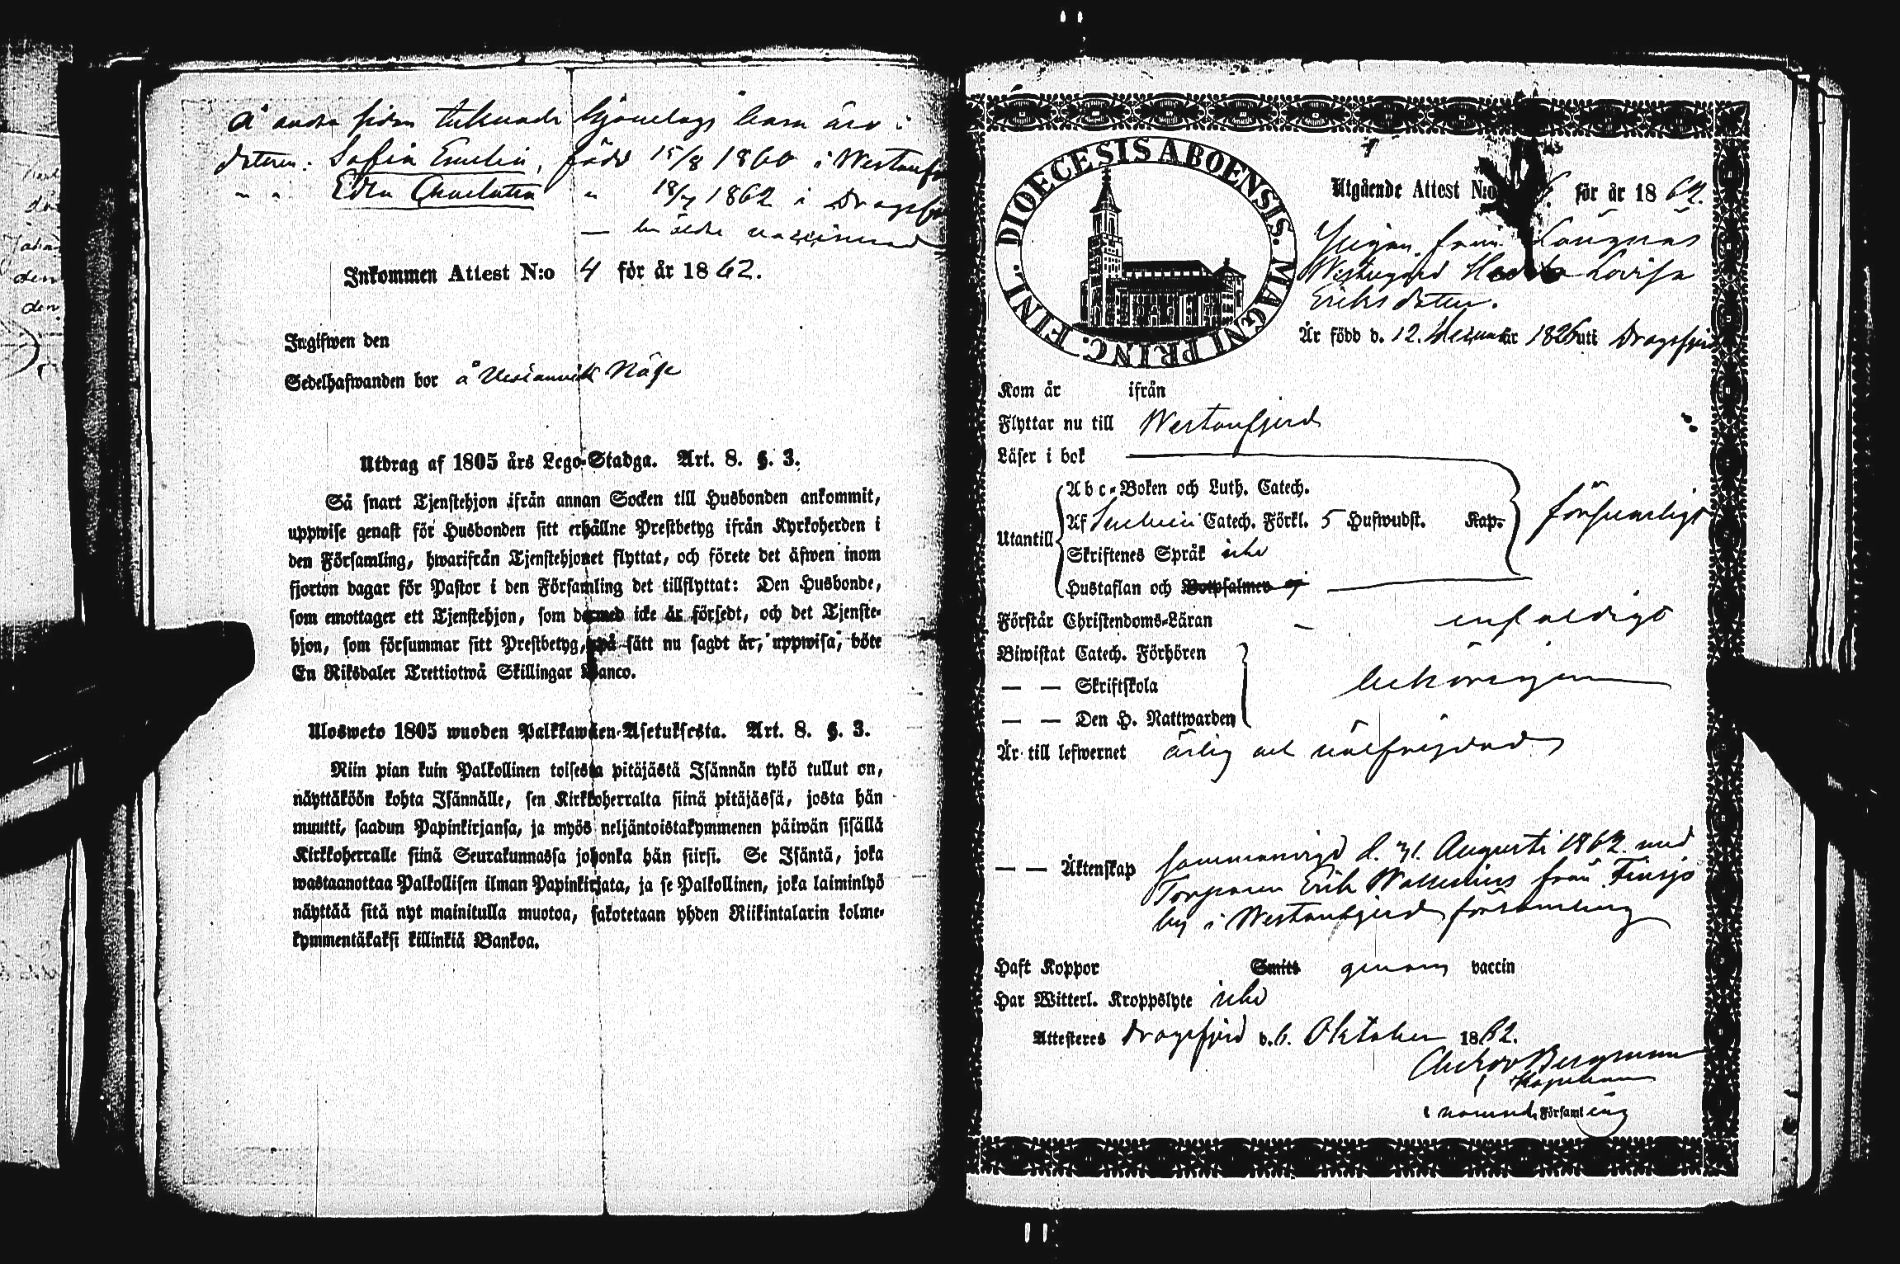 å andra sidan tecknade hjonelags barn äro:
dottren: Sofia Emelia, född 15/8 1860 i Westanfj
" " Eda Charlotta " 18/7 1862 i Dragsfj
— den äldre vaccinerad
Inkommen Attest N:o 4 för år 1862.
Ingifwen den
Sedelhafwanden bor å
Utdrag af 1805 års Lego-Stadga. Art. 8. §. 3.
Så snart Tjenstehjon ifrån annan Socken till Husbonden ankommit,
uppwise genast för Husbonden sitt erhållne Prestbetyg ifrån Kyrkoherden i
den Församling, hwarifrån Tjenstehjonet flyttat, och förete det äfwen inom
fjorton dagar för Pastor i den Församling det tillflyttat: Den Husbonde,
som emottager ett Tjenstehjon, som dermed icke är försedt, och det Tjenste-
hjon, som försummar sitt Prestbetyg, på sätt nu sagdt är, uppwisa, böte
En Riksdaler Trettiotwå Skillingar Banco.
Ulosweto 1805 wuoden Palkkawäen-Asetuksesta. Art. 8. §. 3.
Niin pian kuin Palkollinen toisesta pitäjästä Isännän tykö tullut on,
näyttäköön kohta Isännälle, sen Kirkkoherralta siinä pitäjässä, josta hän
muutti, saadun Papinkirjansa, ja myös neljäntoistakymmenen päiwän sisällä
Kirkkoherralle siinä Seurakunnassa johonka hän siirsi. Se Isäntä, joka
wastaanottaa Palkollisen ilman Papinkirjata, ja se Palkollinen, joka laiminlyö
näyttää sitä nyt mainitulla muotoa, sakotetaan yhden Riikintalarin kolme-
kymmentäkaksi killinkiä Bankoa.
DIOECESIS ABOENSIS. MAGNI PRINC. FINL.
Utgående Attest N:o för år 1862.
Pigan från Långnäs
Westergård Lovisa
Eriksdotter.
Är född d. 12. December 1826 uti Dragsfjerd
Kom år ifrån
Flyttar nu till Westanfjerd
Läser i bok
Utantill
Abc-Boken och Luth. Catech.
Af Catech. Förkl. 5 Hufwudst. Kap.
försvarligt
Skriftenes Språk icke
Hustaflan och Botpsalmen ej
Förstår Christendoms-Läran — enfaldigt
Biwistat Catech. Förhören
— — Skriftskola
behörigen
— — Den H. Nattwarden
Är till lefwernet ärlig och välfrejdad
— — Äktenskap sammanvigd d. 31. Augusti 1862 med
Torparen Erik från Finsjö
by i Westanfjerd församling
Haft Koppor Smitt genom vaccin
Har Witterl. Kroppslyte icke
Attesteres Dragsfjerd d. 6. Oktober 1862.
Bergman
Kapellan
i nämnde Församling